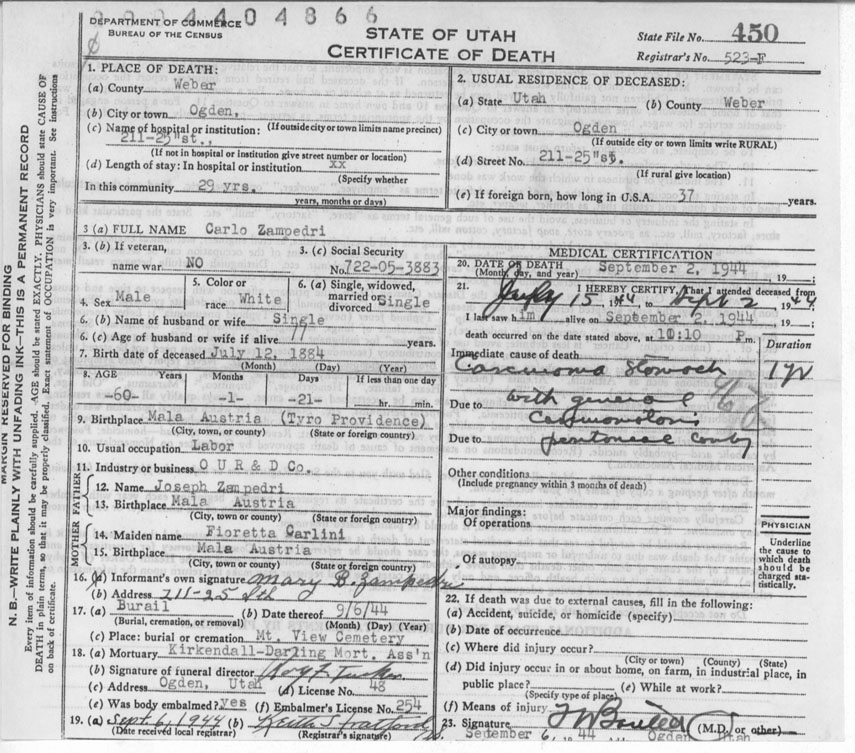 0004404866
DEPARTMENT OF COMMERCE
BUREAU OF THE CENSUS
STATE OF UTAH
CERTIFICATE OF DEATH
State File No. 450
Registrar's No. 523-F
MARGIN RESERVED FOR BINDING
N. B.—WRITE PLAINLY WITH UNFADING INK—THIS IS A PERMANENT RECORD
Every item of information should be carefully supplied. AGE should be stated EXACTLY. PHYSICIANS should state CAUSE OF
DEATH in plain terms, so that it may be properly classified. Exact statement of OCCUPATION is very important. See instructions
on back of certificate.
1. PLACE OF DEATH:
(a) County Weber
(b) City or town Ogden,
(c) Name of hospital or institution: (If outside city or town limits name precinct)
211-25"st.,
(If not in hospital or institution give street number or location)
(d) Length of stay: In hospital or institution xx
(Specify whether
In this community 29 yrs.
years, months or days)
2. USUAL RESIDENCE OF DECEASED:
(a) State Utah (b) County Weber
(c) City or town Ogden
(If outside city or town limits write RURAL)
(d) Street No. 211-25"st.
(If rural give location)
(e) If foreign born, how long in U.S.A. 37 years.
3 (a) FULL NAME Carlo Zampedri
3. (b) If veteran,
name war NO
3. (c) Social Security
No. 722-05-3883
4. Sex Male
5. Color or
race White
6. (a) Single, widowed,
married or
divorced Single
6. (b) Name of husband or wife Single
6. (c) Age of husband or wife if alive years.
7. Birth date of deceased July 12, 1884
(Month) (Day) (Year)
8. AGE Years Months Days If less than one day
-60- -1- -21- hr. min.
9. Birthplace Mala Austria (Tyro Providence)
(City, town, or county) (State or foreign country)
10. Usual occupation Labor
11. Industry or business O U R & D Co.
FATHER
12. Name Joseph Zampedri
13. Birthplace Mala Austria
(City, town or county) (State or foreign country)
MOTHER
14. Maiden name Fioretta Carlini
15. Birthplace Mala Austria
(City, town or county) (State or foreign country)
16. (a) Informant's own signature Mary B. Zampedri
(b) Address 211-25 Sth
17. (a) Burail (b) Date thereof 9/6/44
(Burial, cremation, or removal) (Month) (Day) (Year)
(c) Place: burial or cremation Mt. View Cemetery
18. (a) Mortuary Kirkendall-Darling Mort. Ass'n
(b) Signature of funeral director Roy F Tucker
(c) Address Ogden, Utah (d) License No. 48
(e) Was body embalmed? yes (f) Embalmer's License No. 254
19. (a) Sept. 6, 1944 (b) Keith Stratford
(Date received local registrar) (Registrar's signature)
MEDICAL CERTIFICATION
20. DATE OF DEATH
(Month, day, and year) September 2, 1944 19 ;
21. I HEREBY CERTIFY, That I attended deceased from
July 15, 1944 to Sept 2, 1944
I last saw him alive on September 2, 1944 19 ;
death occurred on the date stated above, at 10:10 P m.
Duration
Immediate cause of death
Carcinoma Stomach
Due to with general
Due to peritoneal
Other conditions
(Include pregnancy within 3 months of death)
Major findings:
Of operations
Of autopsy
PHYSICIAN
Underline
the cause to
which death
should be
charged sta-
tistically.
22. If death was due to external causes, fill in the following:
(a) Accident, suicide, or homicide (specify)
(b) Date of occurrence
(c) Where did injury occur?
(City or town) (County) (State)
(d) Did injury occur in or about home, on farm, in industrial place, in
public place? (e) While at work?
(Specify type of place)
(f) Means of injury
23. Signature (M.D. or other)
September 6, 1944 Ogden Utah